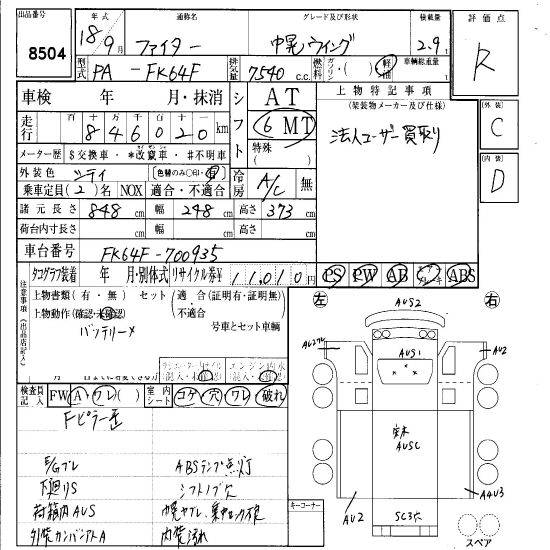 出品番号 8504
年式 18年9月 通称名 ファイター
グレード及び形状 中晃 パウイング
積載量 2.9t
評価点 R
型式 PA - FK64F
排気量 7540 c.c.
燃料 ガソリン・( )・軽油
車輌総重量 t
車検 年 月・抹消
シフト AT
6 MT
特殊( )
上物特記事項
(架装物メーカー及び仕様)
法人ユーザー買取り
外装 C
内装 D
走行 十万千百十 km
846020
メーター歴 $交換車・*改竄車・#不明車
外装色 シティ (色替のみ○印・車)
冷房 A/C 無
乗車定員(2)名 NOX 適合・不適合
諸元長さ 848 cm 幅 248 cm 高さ 373 cm
荷台内寸長さ cm 幅 cm 高さ cm
車台番号 FK64F-700935
タコグラフ装着 年 月・別体式 リサイクル券¥ 11,010円
PS PW AB ABS
注意事項(出品店記入)
上物書類(有・無) セット(適合(証明有・証明無)
不適合
上物動作(確認・未確認) 号車とセット車輌
バッテリーメ
検査員記入 FW(A・ワレ( ) 室内シート コゲ・穴 ワレ・破れ
Fピラー歪
E/Gブレ ABSランプ点灯
下廻りS シフトノブ穴
荷箱内AUS
内装汚れ
キーコーナー
左 右
AUS2
AUS1
AU2
AUSC
AU2
AAU3
SC3穴
スペア